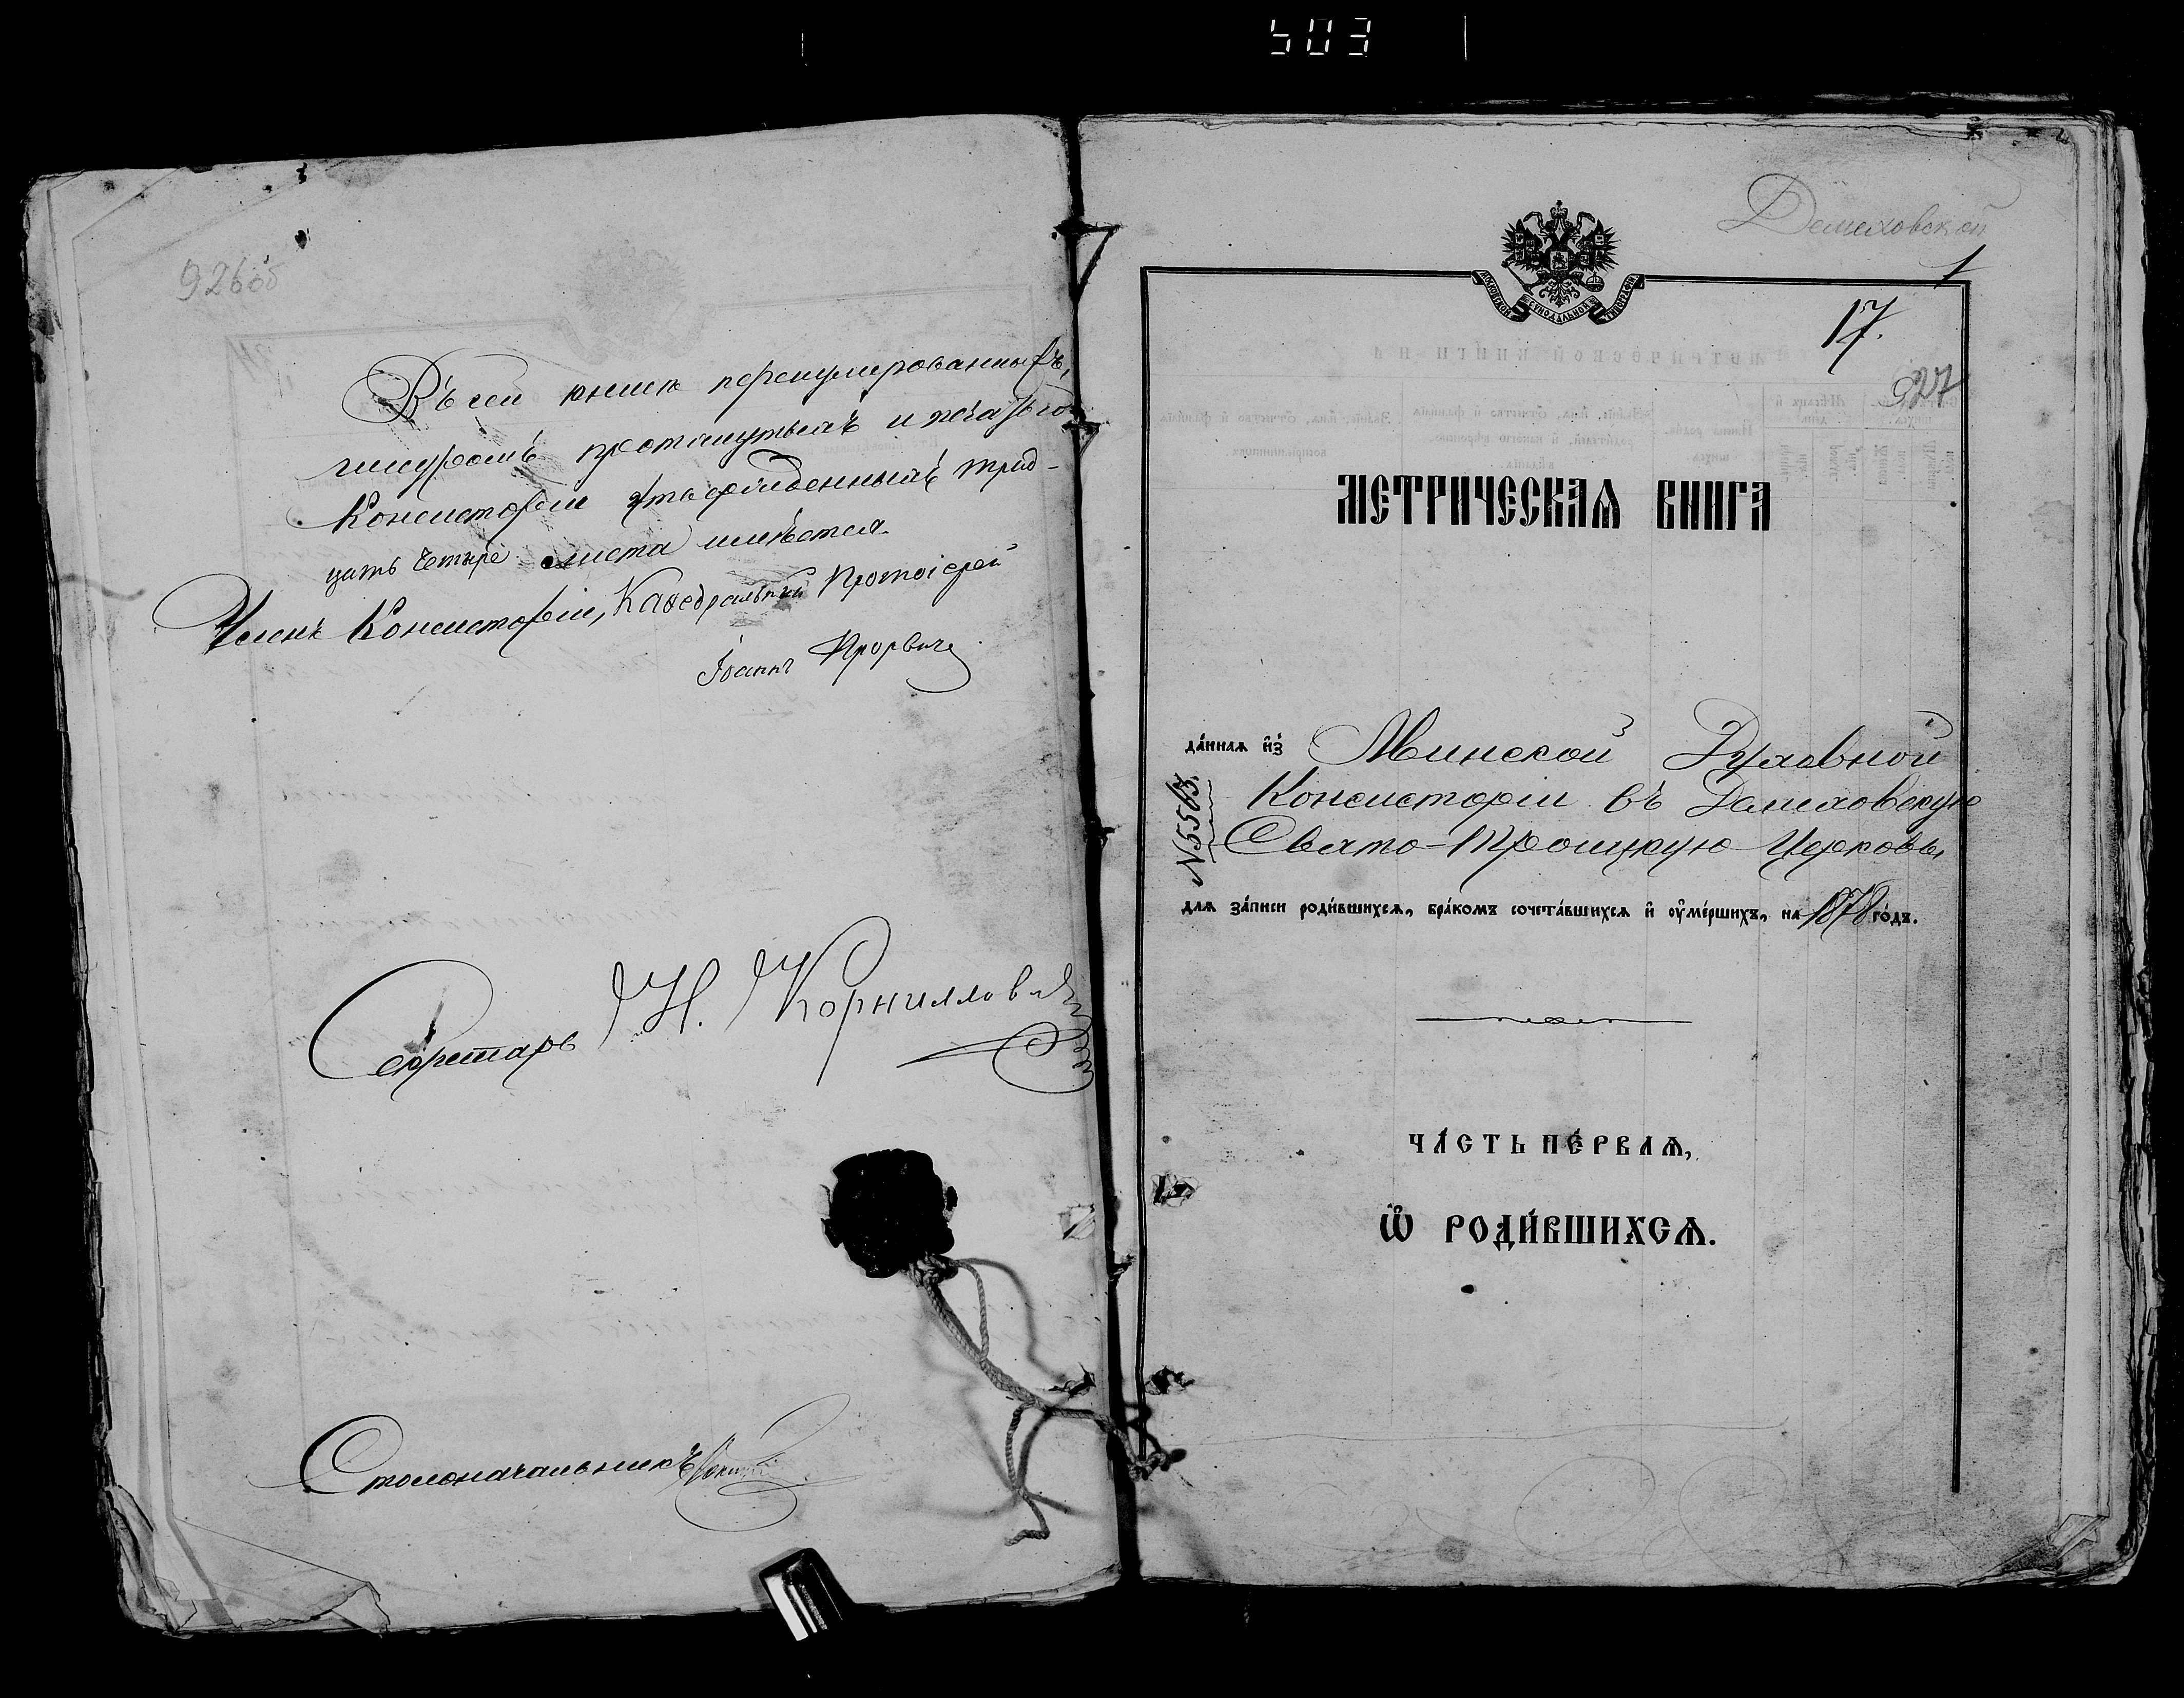 503
926 об
Въ сей книгѣ перенумерованныхъ,
шнуромъ протянутыхъ и печатью
Консисторіи утвержденныхъ трид-
цать четыре листа имѣется.
Членъ Консисторіи, Каѳедральный Протоіерей
Іоаннъ
Секретарь Н. Корниллов
Столоначальникъ
Демеховской
МОСКОВСКОЙ СѴНОДАЛЬНОЙ ТИПОГРАФІИ
1
17.
927
МЕТРИЧЕСКАѦ КНИГА
да́ннаѧ и҆зъ Минской Духовной
Консисторіи въ Демеховскую
Свято-Троицкую Церковь,
№ 5563.
длѧ за́писи роди́вшихсѧ, бра́комъ сочета́вшихсѧ и҆ оу҆ме́ршихъ, на 1878 го́дъ.
ЧА́СТЬ ПЕ́РВАѦ,
Ѽ РОДИ́ВШИХСѦ.